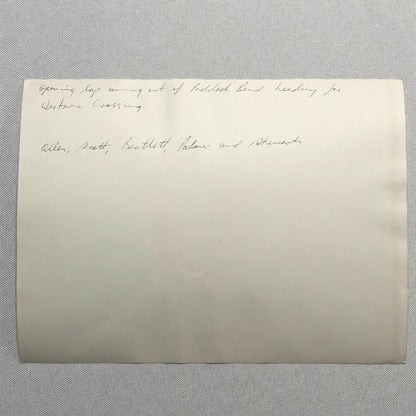 opening lap coming out of Paddock Bend heading for
Western Crossing
Allen, Scott, Bartlett, Palmer and Stewart